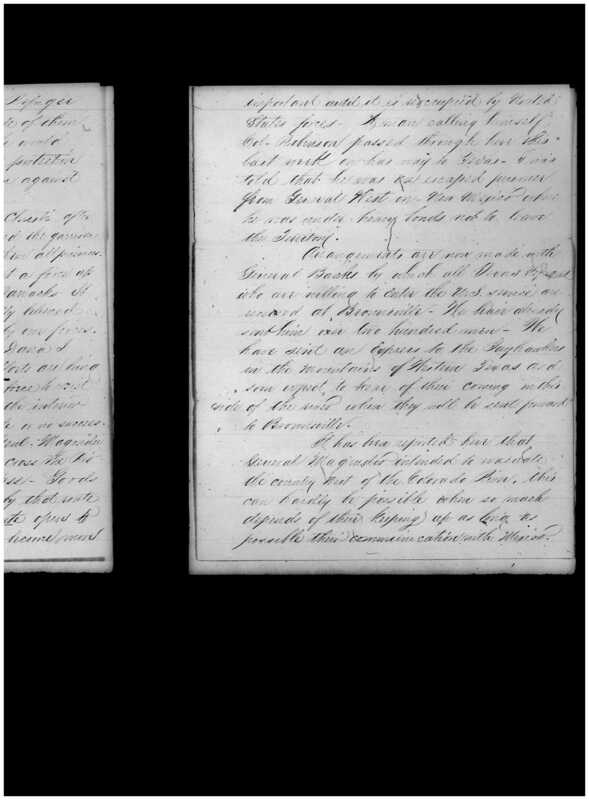 Refugee
of them
would
protection
against
Christi after
the garrison
all prisoners
at a place up
Banacks It
by our forces.
Dana &
Ports are being
force to rest
the interior
or no success.
Genl. Magruder
cross the Rio
Goods
by that route
opens to
become more
important until it is occupied by United
States forces - A man calling himself
Col. Robinson passed through here this
last week on his way to Texas - I was
told that he was an escaped prisoner
from General West in New Mexico where
he was under heavy bonds not to leave
the Territory.
Arrangements are now made with
General Banks by which all Texas Refugees
who are willing to enter the U.S. service are
received at Brownsville - We have already
sent him over two hundred men - We
have sent an Express to the Jayhawkers
in the mountains of Western Texas and
soon expect to hear of their coming on this
side of the river when they will be sent forward
to Brownsville.
It has been reported here that
General Magruder intended to
the country west of the Colorado River, this
can hardly be possible when so much
depends of their keeping up as long as
possible their communication with Mexico.